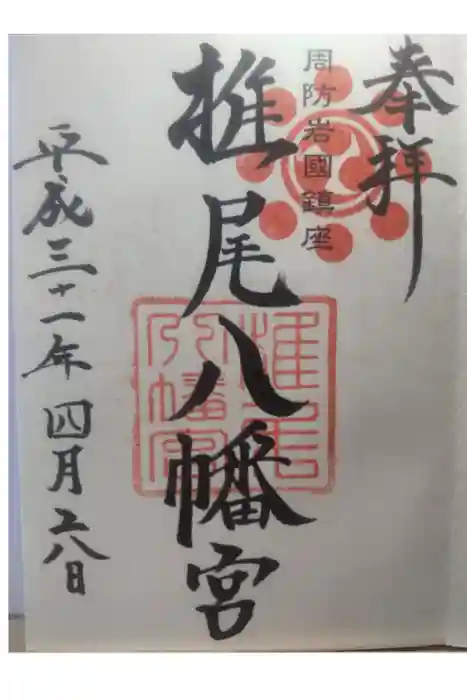 奉拝
周防岩國鎮座
椎尾八幡宮
椎尾八幡宮
平成三十一年四月二八日